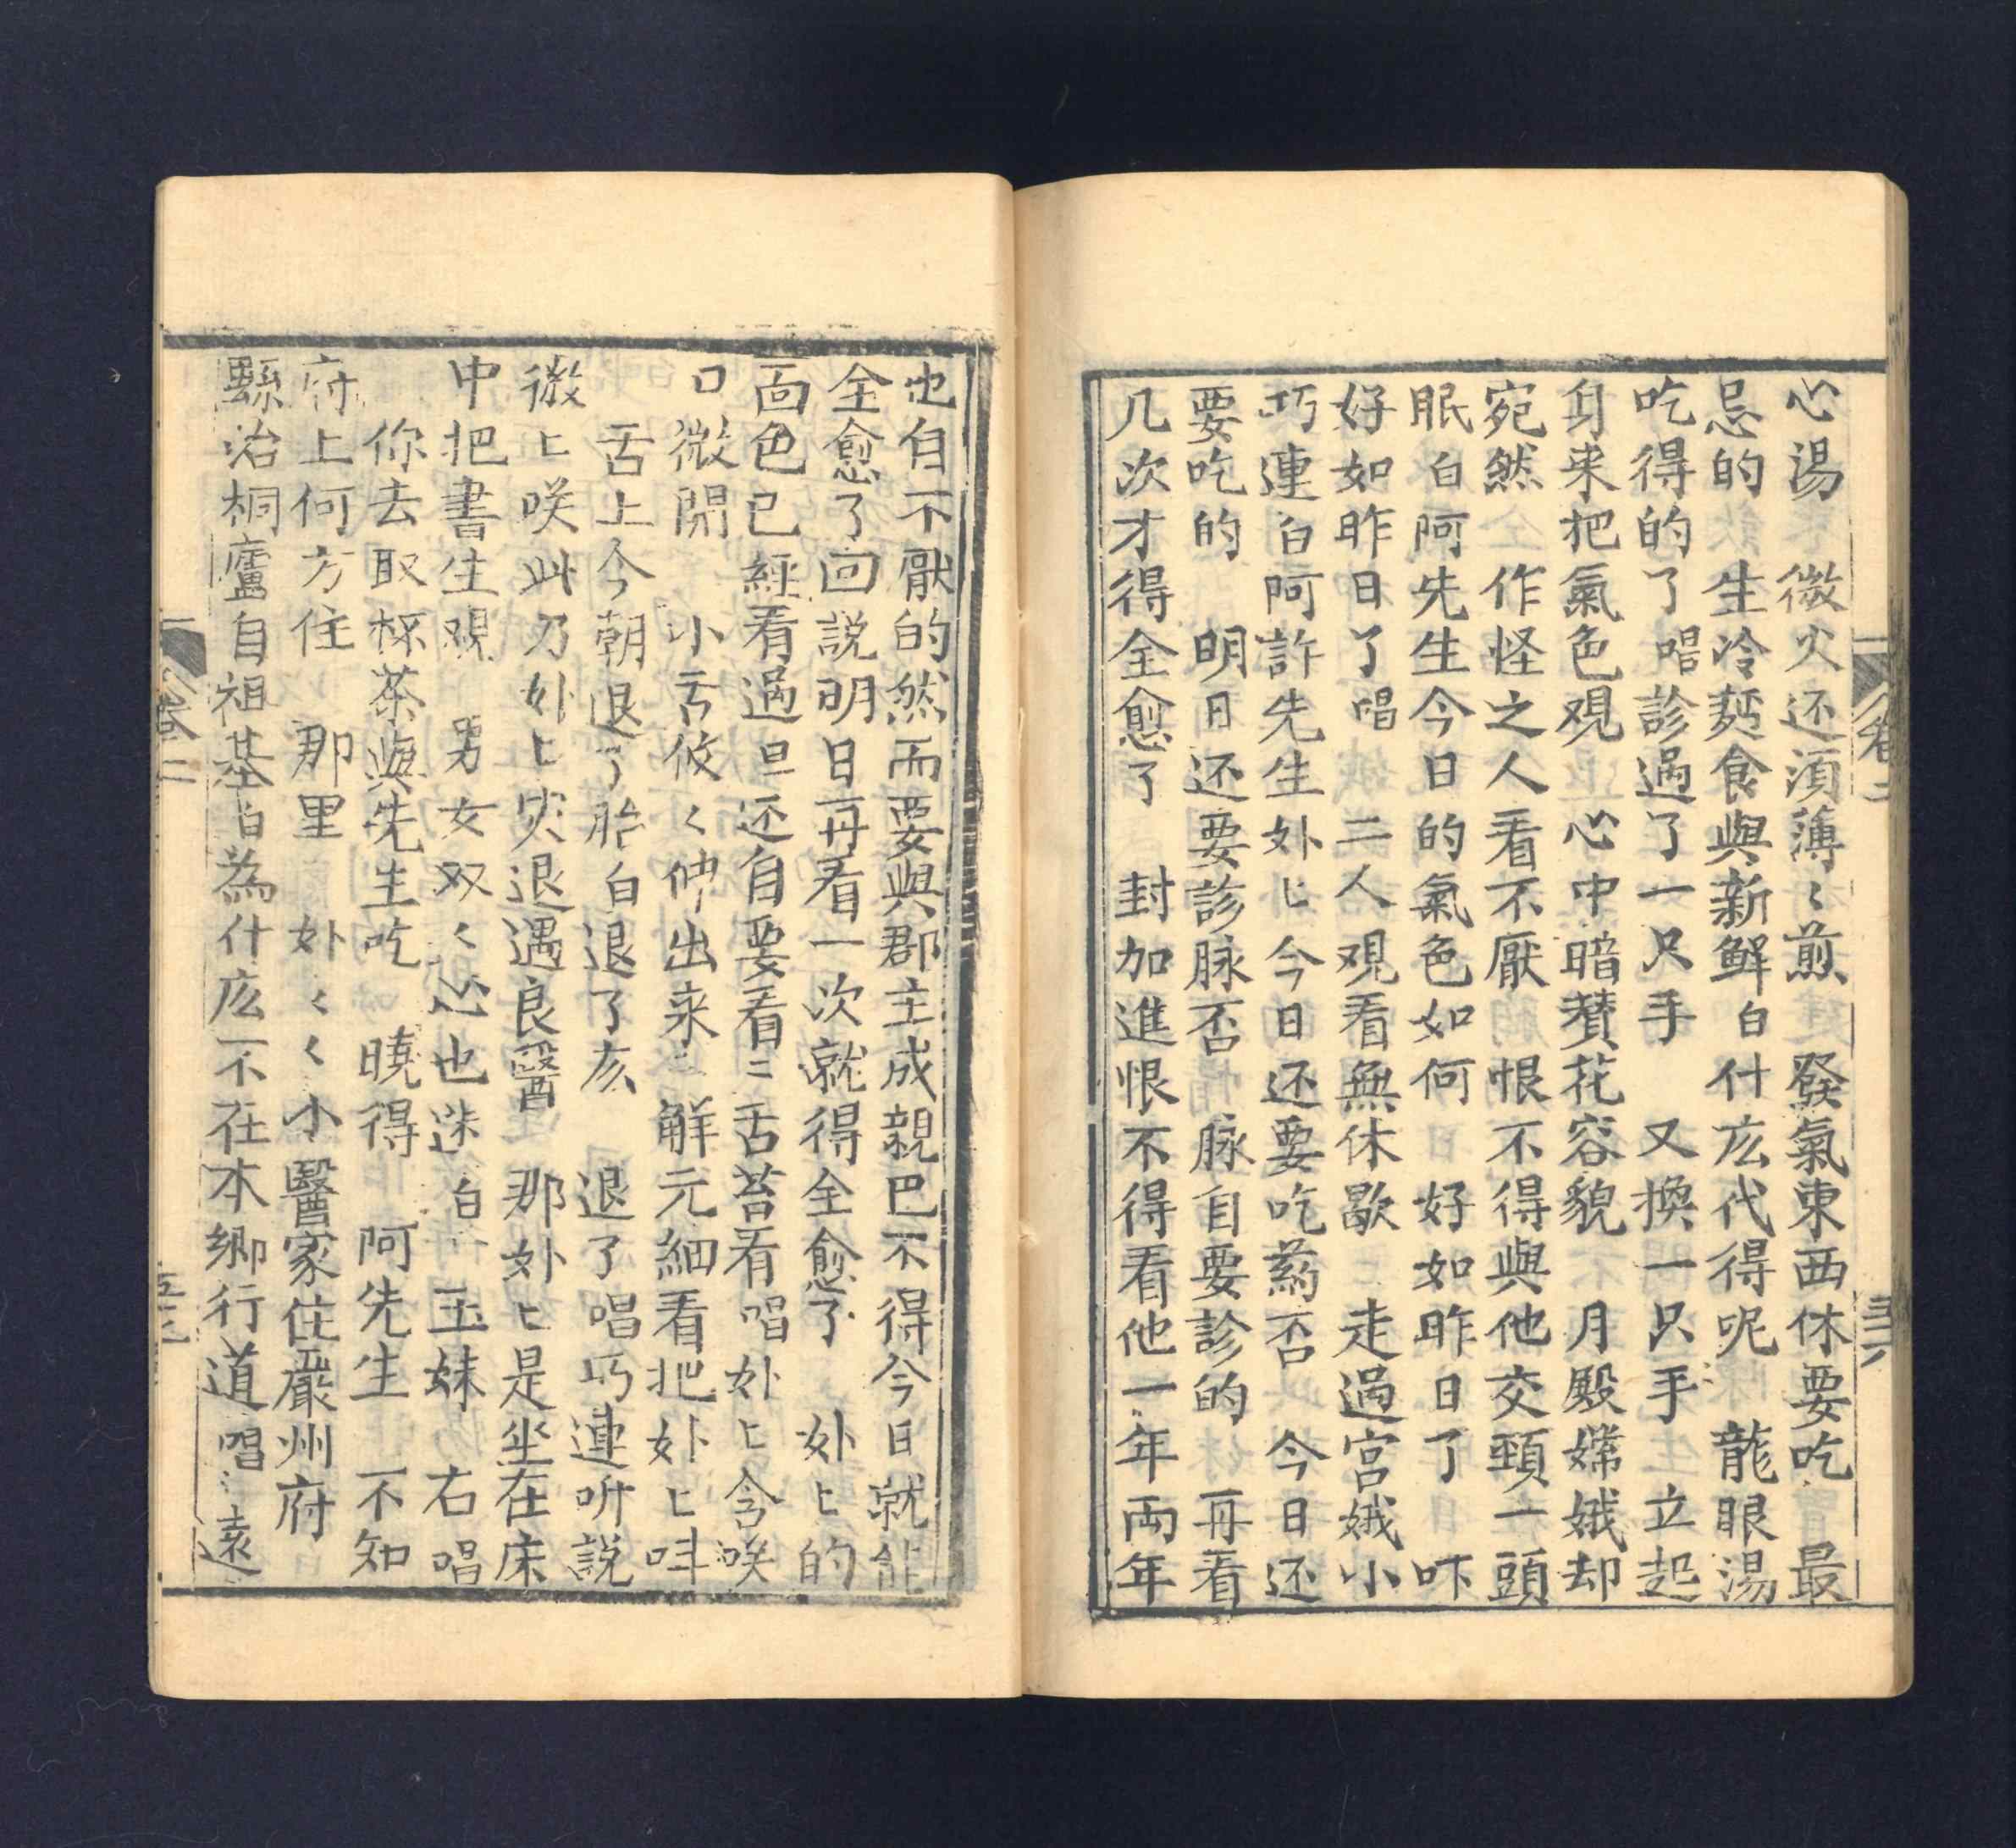 心湯　微火还須薄〻煎　發氣東西休要吃　最
忌的　生冷麪食與新鮮白什庅代得呢　龍眼湯
吃得的了唱診過了一只手　又換一只手　立起
身来把氣色观　心中暗賛花容貌　月殿嫦娥却
宛然　作怪之人看不厭　恨不得與他交頸一頭
眠白阿先生今日的氣色如何　好如昨日了　吓
好如昨日了唱　二人观看無休歇　走過宫娥小
巧連白阿許先生外〻今日还要吃葯否　今日还
要吃的　明日还要診脉否　脉自要診的　再看
几次才得全愈了　封加進恨不得看他一年兩年
卷二
也自不厭的然而要與郡主成親巴不得今日就能
全愈了回説明日再看一次就得全愈了　外〻的
面色已經看過旦还自要看〻舌苔看唱外〻含咲
口微開　小舌攸〻伸出来　觧元細看把外〻呌
舌上今朝退了胎白退了亥　退了唱巧連听説
微〻咲此乃外〻灾退遇良醫　那外〻是坐在床
中把書生观　男女双〻心也迷白　玉妹　右唱
你去取杯茶與先生吃　曉得　阿先生　不知
府上何方住　那里　外〻〻小醫家住嚴州府
縣治桐廬自祖基白為什庅不在本鄉行道唱　遠
卷二